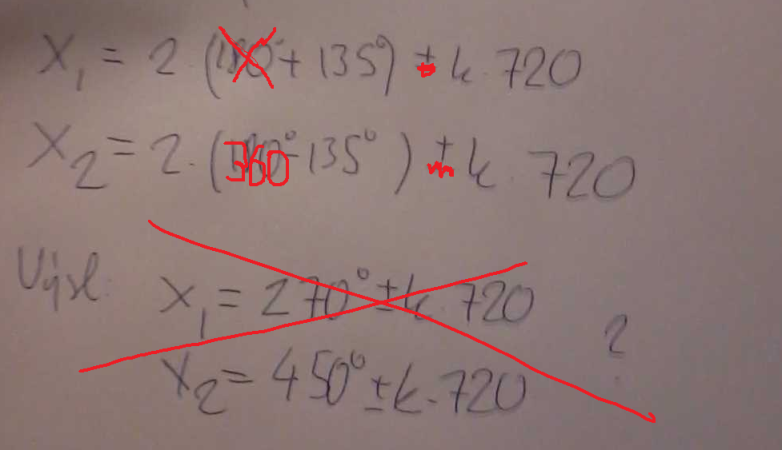 X₁ = 2 (180° + 135°) ± k 720
X₂ = 2. (360 - 135°) ± k. 720
Výsl: X₁ = 270° ± k. 720
?
X₂ = 450° ± k. 720